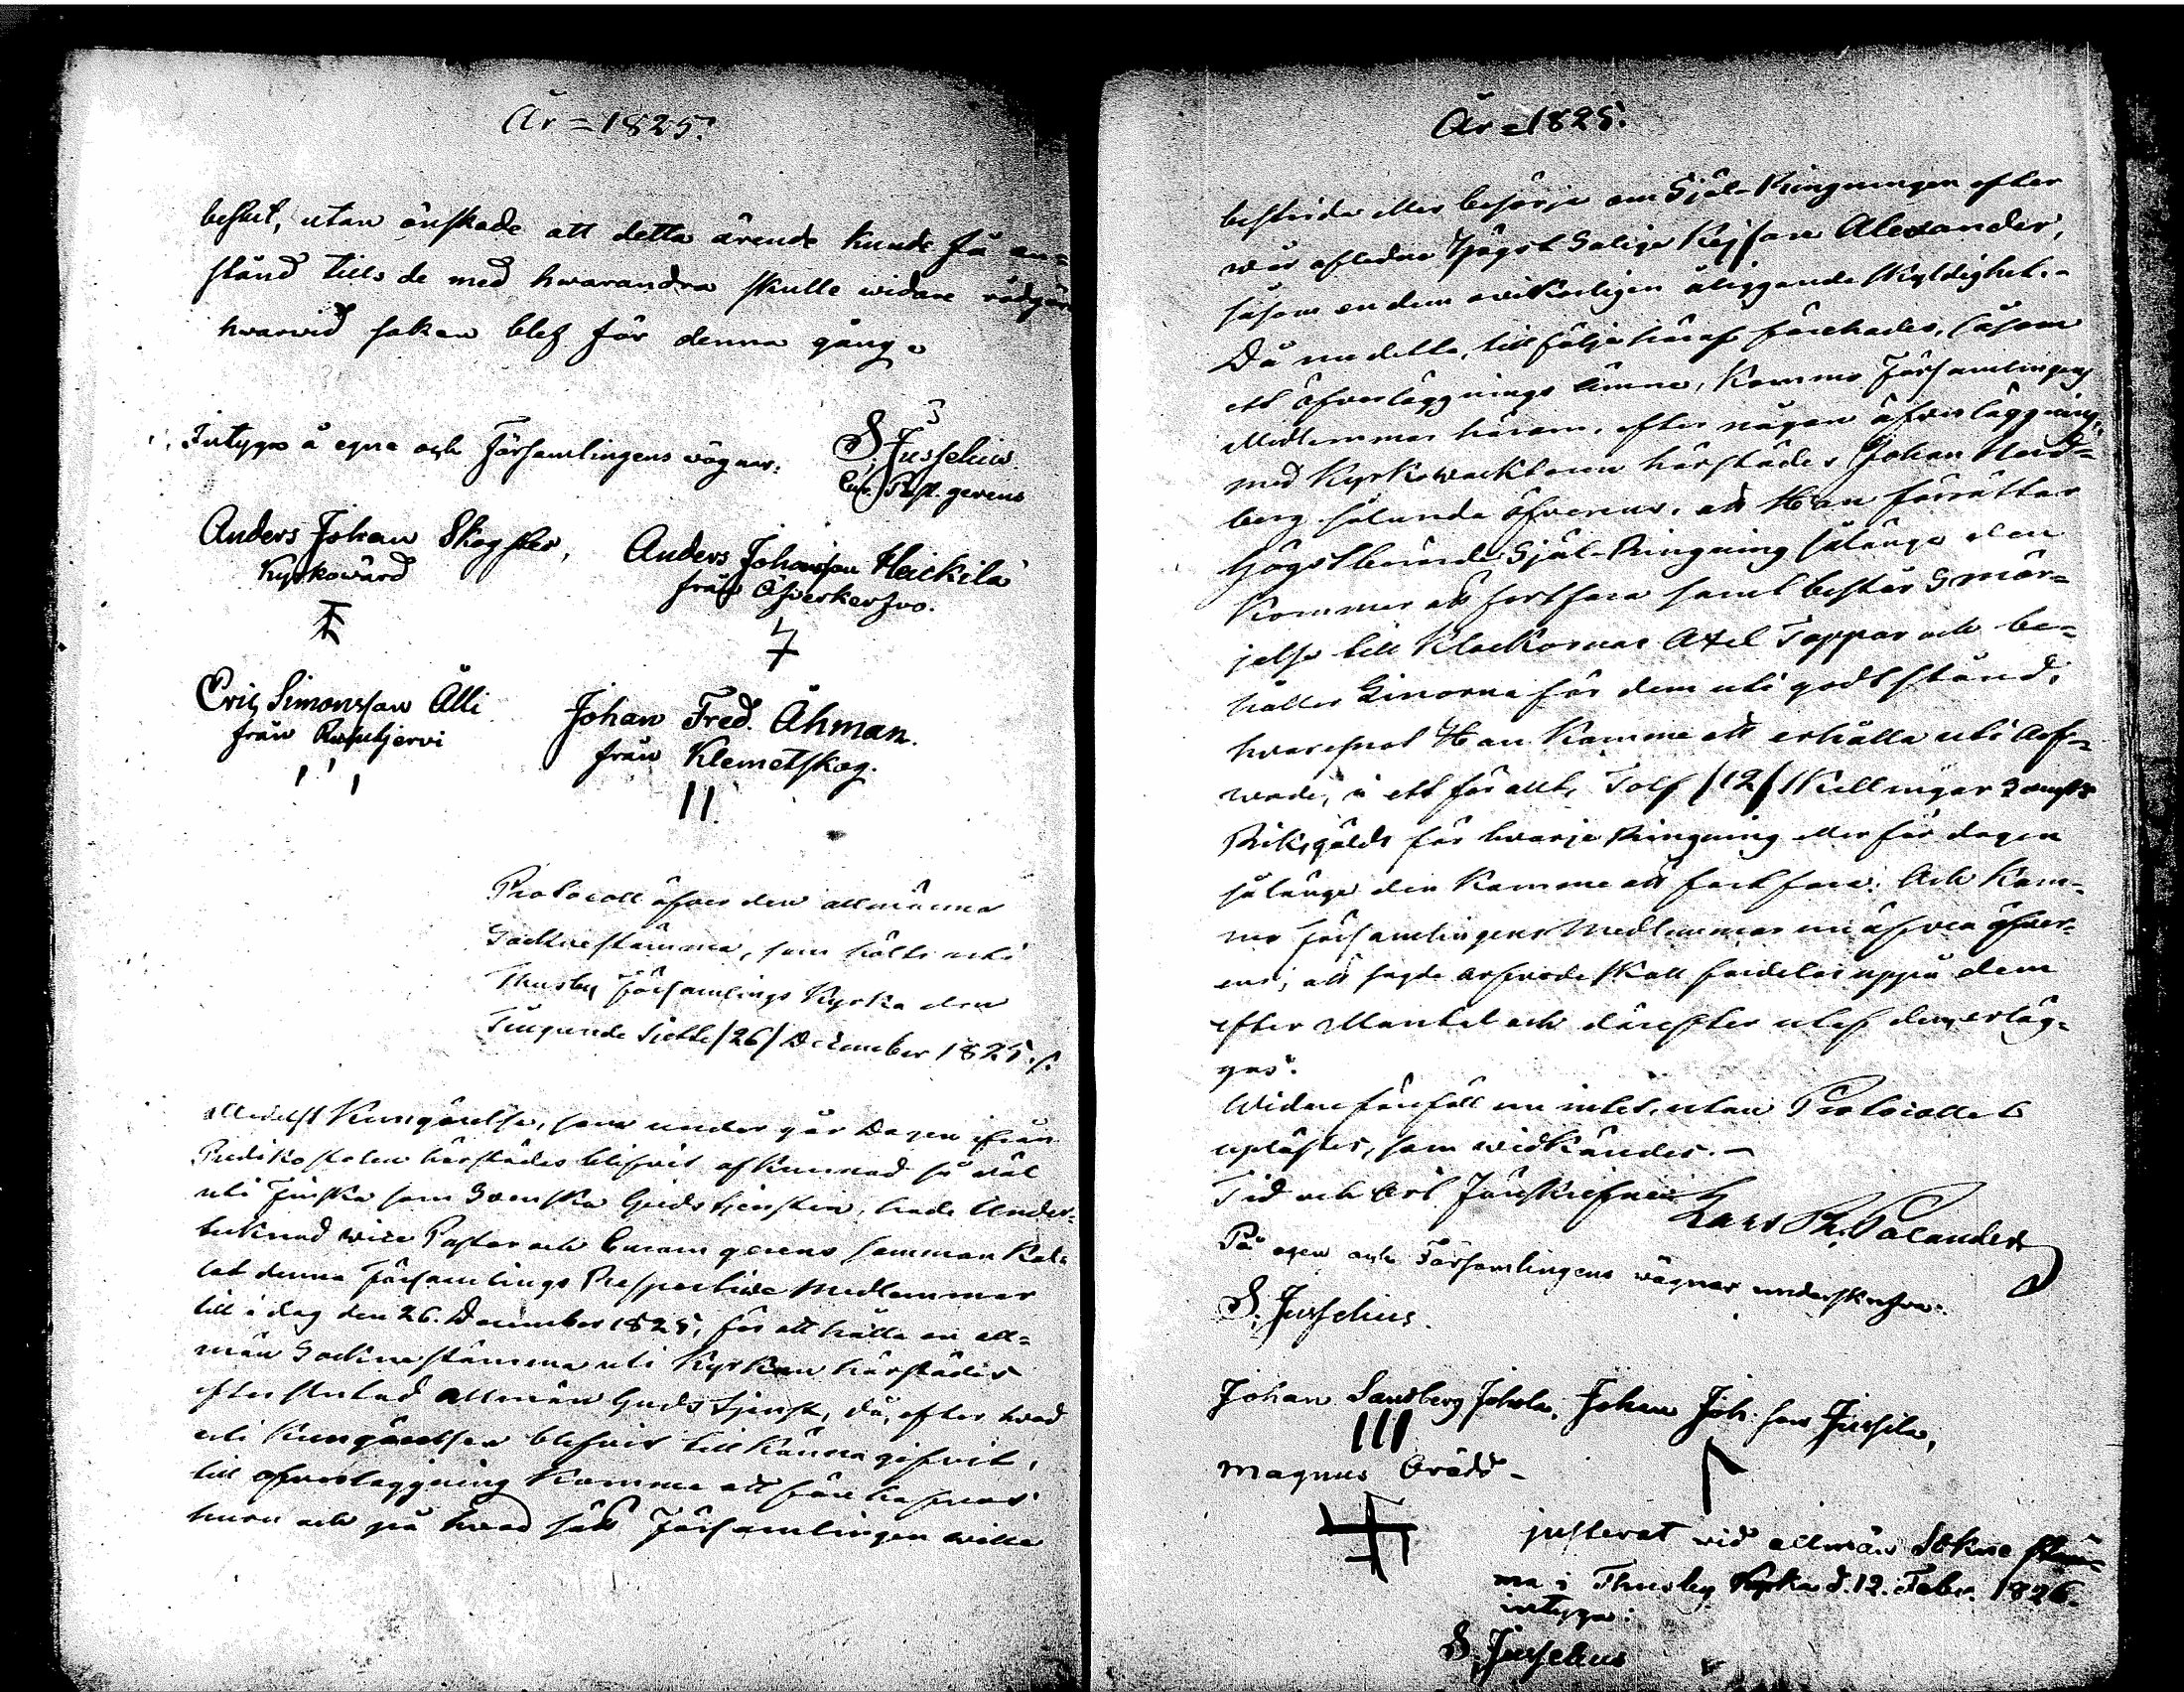 År = 1825.
beslut, utan önskade att detta ärende kunde få an=
stånd tills de med hwarandra skulle widare rådgöra
hwarwid saken blef för denna gång.
Intyga å egna och Församlingens wägnar:
S. Jusselius
Cur. Past. gerens
Anders Johan Skogster,
Kyrkowärd
Anders Johansson Heickilä
från Öfverkerfvo.
Eric Simonsson Älli
från Rusutjervi
Johan Fred. Åhman.
från Klemetskog.
Protocoll öfver den allmänna
Socknestämma, som hölts uti
Thusby Församlings Kyrka den
Tjugunde Sjette /26/ December 1825.
Medelst Kungörelse, som under går Dagen ifrån
Predikostolen härstädes blifvit afkunnad så väl
uti Finska som Svenska Gudstjensten, hade Under=
tecknad wice Pastor och Curam gerens samman kal=
lat denna Församlings Respective Medlemmar
till i dag den 26. December 1825, för att hålla en all=
män Sockne stämma uti Kyrkan härstädes
efter slutad allmän Guds tjenst, då, efter hvad
uti Kungörelsen blifvit tillkänna gifvit,
till öfverläggning komme att förehafvas
huru och på hvad sätt Församlingen wille
År = 1825.
bestrida eller besörja om Själ-Ringningen efter
wår afledne Högst Salige Kejsare Alexander,
såsom en dem ovikorligen åliggande skyldighet.-
Då nu detta, till följe häraf förehades, såsom
ett öfverläggnings ämne, kommo Församlingens
Medlemmar härom, efter någon öfverläggning,
med Kyrkowacktaren härstädes Johan Heid=
berg sålunda öfverens, att Han förrättar
Högstberörde Själ-Ringning sålänge den
kommer att fortfara samt består Smör=
jelse till Klockornas Axel Tappar och be=
håller Linorna för dem uti godt stånd,
hvaremot Han komme att erhålla uti arf=
wode, i ett för allt, Tolf /12/ Skillingar Swenskt
Riksgälds för hwarje Ringning eller för dagen
sålänge den komme att fortfara. Och kom=
mo församlingens Medlemmar nu äfven öfver=
ens, att sagde arfvode skall fördelas uppå dem
efter Mantal och därefter utaf dem erläg=
gas.
Widare föreföll nu intet, utan Protocollet
uplästes, som widkändes.-
Tid och Ort Förskrefne
Lars Ph. Palander
På egna och Församlingens wägnar underskrifva:
S. Jusselius.
Johan Sandberg Johola, Johan Joh. son Jussila,
Magnus Orädd -
justerat vid allmän Sokne stäm=
ma i Thusby Kyrka d. 12. Febr. 1826.
intyga:
S. Jusselius